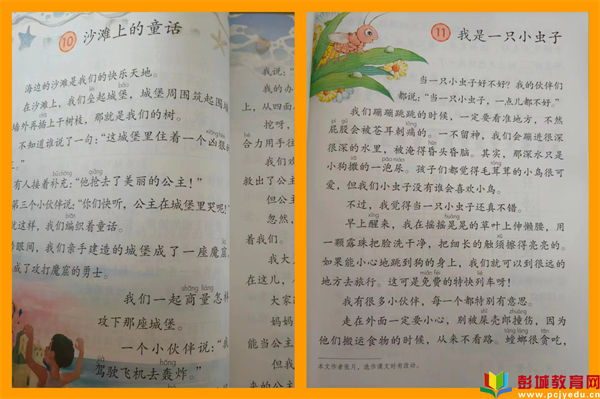 10 沙滩上的童话
海边的沙滩是我们的快乐天地。
在沙滩上,我们垒起城堡,城堡周围筑起围墙
墙外再插上干树枝,那就是我们的树。
不知道谁说了一句:“这城堡里住着一个凶狠
。”
有人接着补充:“他抢去了美丽的公主!”
第三个小伙伴说:“你们快听,公主在城堡里哭呢!”
就这样,我们编织着童话。
眼间,我们亲手建造的城堡成了一座魔窟
成了攻打魔窟的勇士。
shāng liáng
我们一起商量怎样
攻下那座城堡。
一个小伙伴说:“我
驾驶飞机去轰炸。”
我说:“
我的办
上,从四面
挖呀,
合力用手往
我们欢
救出了公主
但公
忽然,
着我们。
我大
在这儿,
大家
妈妈
能当公主
但我
11 我是一只小虫子
当一只小虫子好不好?我的伙伴们
都说:“当一只小虫子,一点儿都不好。”
我们蹦蹦跳跳的时候,一定要看准地方,不然
pì gu
屁股会被苍耳刺痛的。一不留神,我们会蹦进很深
很深的水里,被淹得昏头昏脑。其实,那深水只是
小狗撒的一泡尿。孩子们都觉得毛茸茸的小鸟很可
爱,但我们小虫子没有谁会喜欢小鸟。
不过,我觉得当一只小虫子还真不错。
早上醒来,我在摇摇晃晃的草叶上伸懒腰,用
一颗露珠把脸洗干净,把细长的触须擦得亮亮的。
如果能小心地跳到狗的身上,我们就可以到很远的
miǎn fèi
地方去旅行。这可是免费的特快列车呀!
我有很多小伙伴,每一个都特别有意思。
走在外面一定要小心,别被屎壳郎撞伤,因为
táng láng
他们搬运食物的时候,从来不看路。螳螂很贪吃,
本文作者张月,选作课文时有改动。
彭城教育网
www.pcjyedu.cn